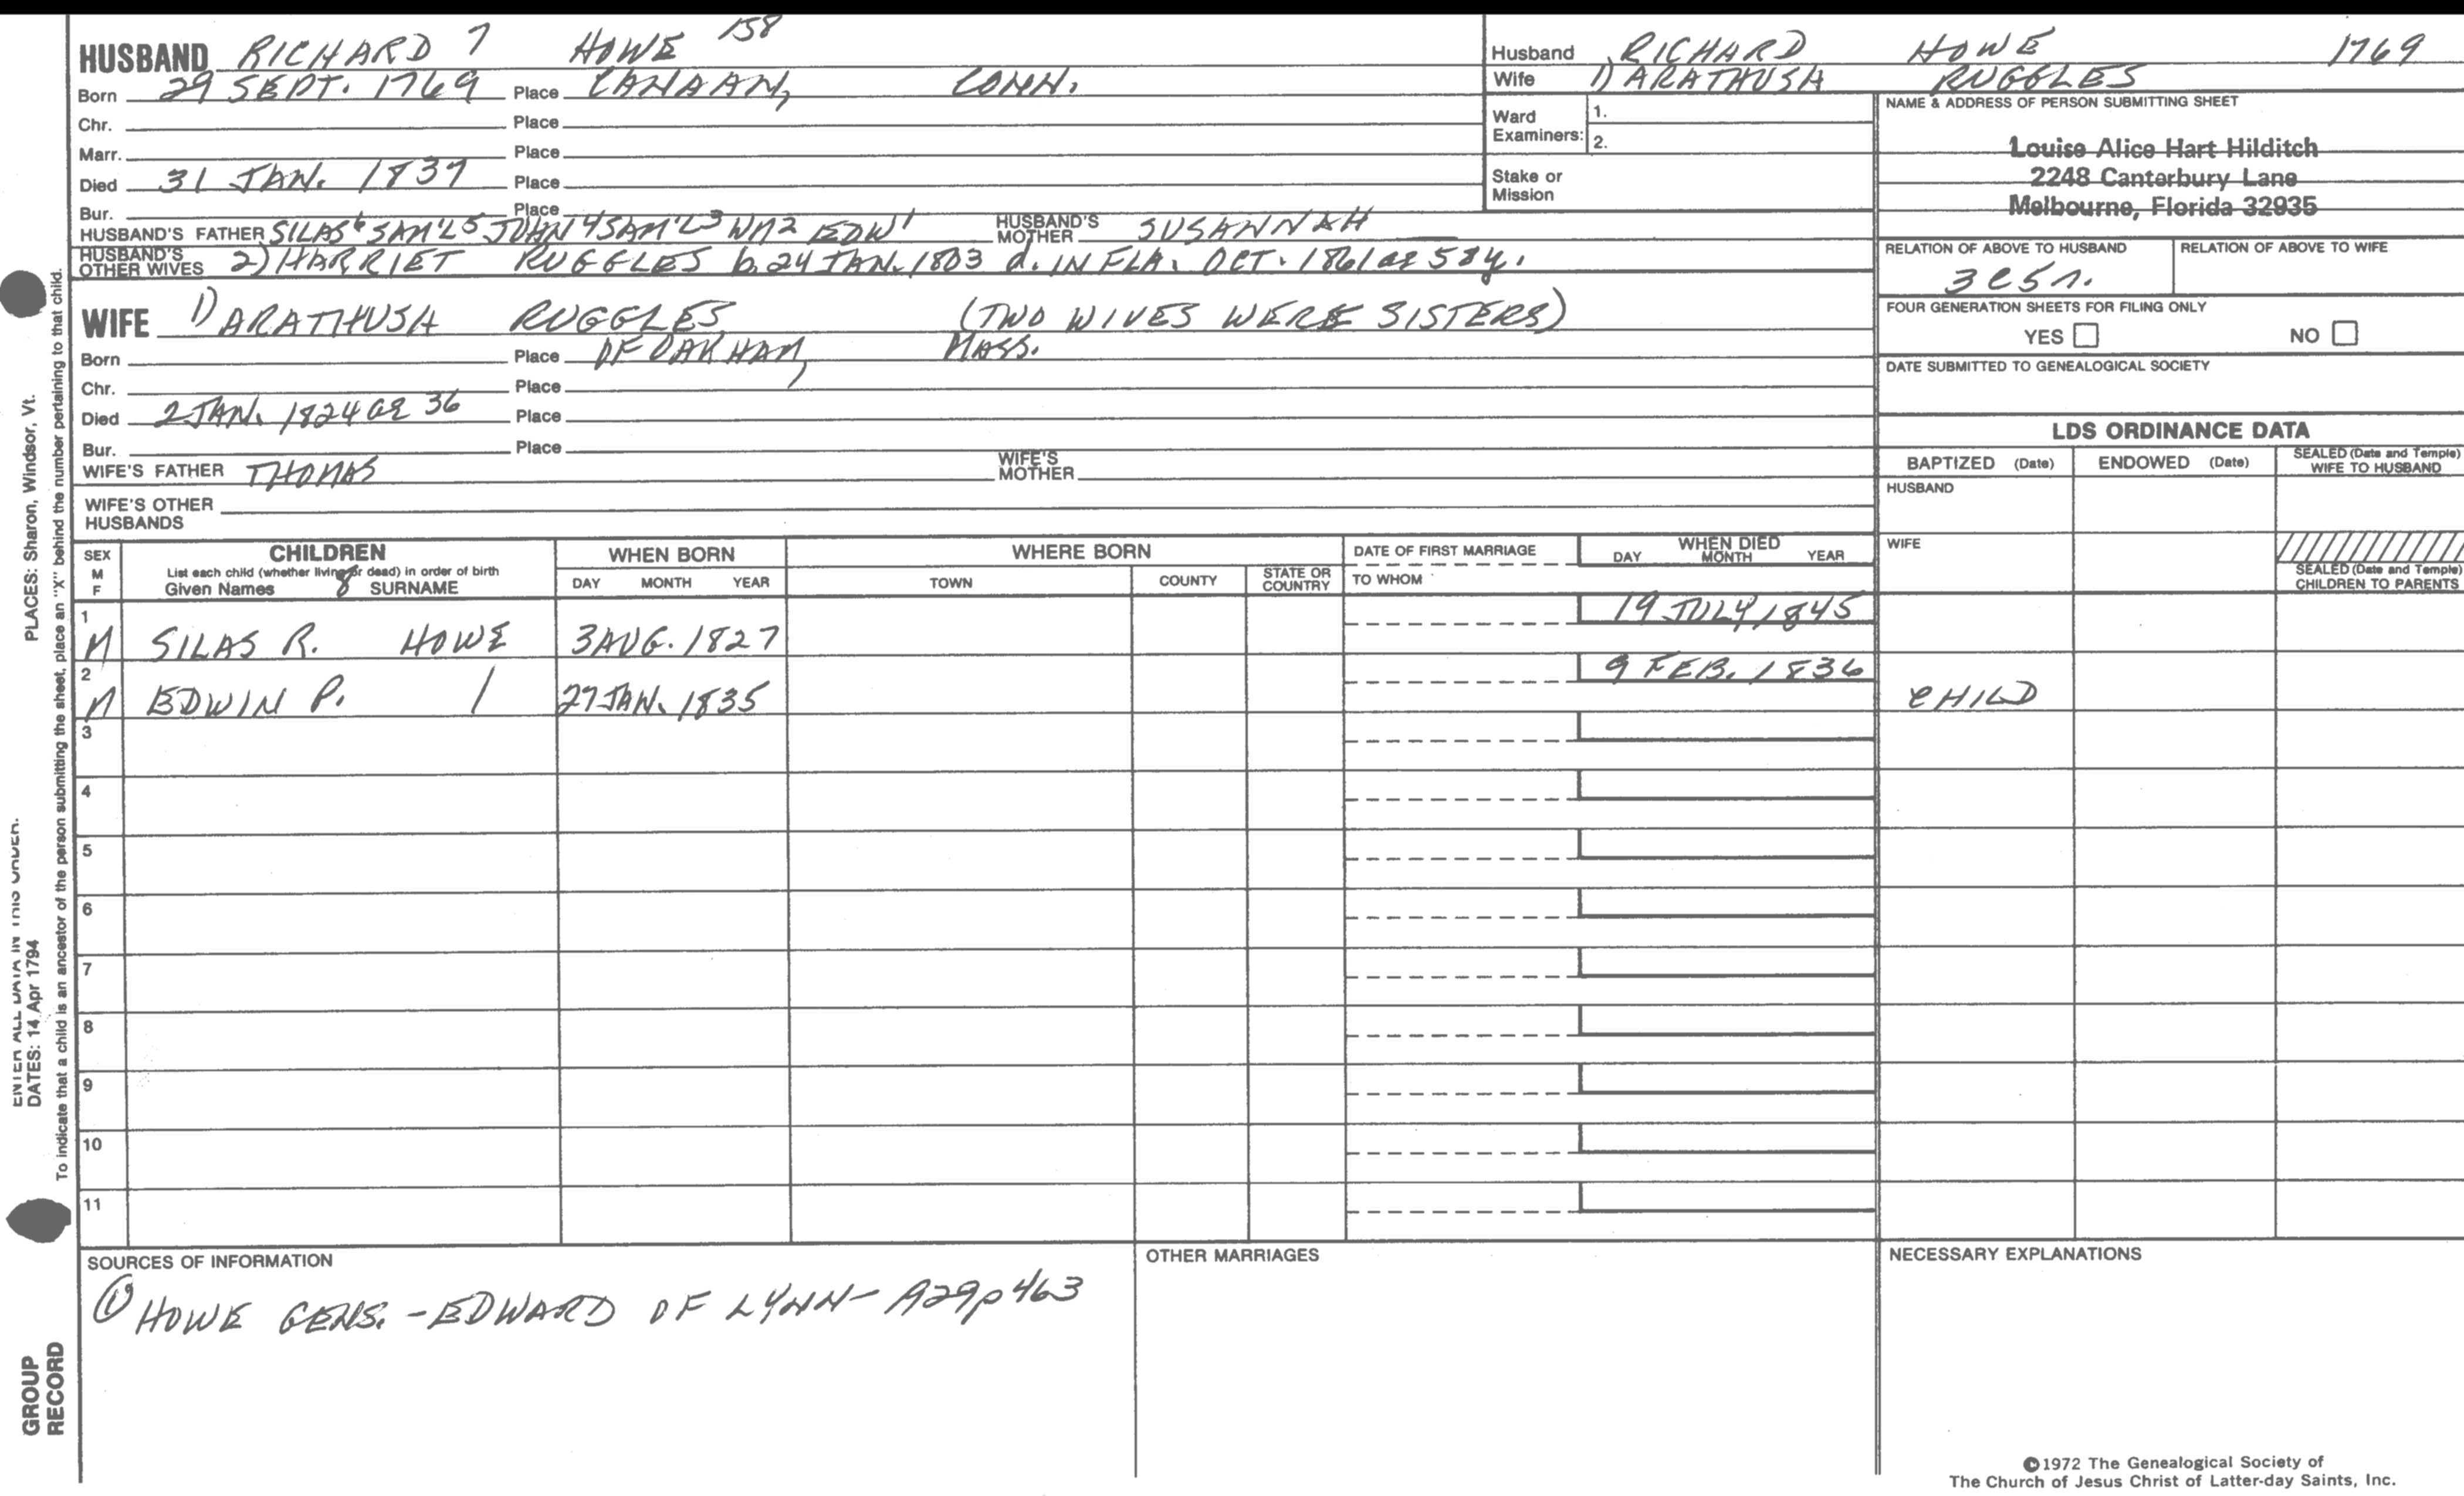 HUSBAND RICHARD 7 HOWE 158
Born 29 SEPT. 1769 Place CANAAN, CONN.
Chr. Place
Marr. Place
Died 31 JAN. 1837 Place
Bur. Place
HUSBAND'S FATHER SILAS 6 SAM'L 5 JOHN 4 SAM'L 3 WM 2 EDW 1 HUSBAND'S MOTHER SUSANNAH
HUSBAND'S OTHER WIVES 2) HARRIET RUGGLES b. 24 JAN. 1803 d. IN FLA. OCT. 1861 ae 58 y.
WIFE 1) ARATHUSA RUGGLES (TWO WIVES WERE SISTERS)
Born Place OF OAKHAM, MASS.
Chr. Place
Died 2 JAN. 1824 ae 36 Place
Bur. Place
WIFE'S FATHER THOMAS WIFE'S MOTHER
WIFE'S OTHER HUSBANDS
Husband RICHARD HOWE 1769
Wife 1) ARATHUSA RUGGLES
Ward Examiners: 1.
2.
Stake or Mission
NAME & ADDRESS OF PERSON SUBMITTING SHEET
Louise Alice Hart Hilditch
2248 Canterbury Lane
Melbourne, Florida 32935
RELATION OF ABOVE TO HUSBAND RELATION OF ABOVE TO WIFE
3C5r.
FOUR GENERATION SHEETS FOR FILING ONLY
YES NO
DATE SUBMITTED TO GENEALOGICAL SOCIETY
LDS ORDINANCE DATA
BAPTIZED (Date) ENDOWED (Date) SEALED (Date and Temple) WIFE TO HUSBAND
HUSBAND
WIFE
SEALED (Date and Temple) CHILDREN TO PARENTS
SEX M F CHILDREN WHEN BORN WHERE BORN DATE OF FIRST MARRIAGE WHEN DIED
List each child (whether living or dead) in order of birth
Given Names 8 SURNAME DAY MONTH YEAR TOWN COUNTY STATE OR COUNTRY TO WHOM DAY MONTH YEAR
1 M SILAS R. HOWE 3 AUG. 1827 19 JULY 1845
2 M EDWIN P. / 27 JAN. 1835 9 FEB. 1836 CHILD
3
4
5
6
7
8
9
10
11
SOURCES OF INFORMATION
① HOWE GENS. - EDWARD OF LYNN - A29p463
OTHER MARRIAGES
NECESSARY EXPLANATIONS
©1972 The Genealogical Society of
The Church of Jesus Christ of Latter-day Saints, Inc.
PLACES: Sharon, Windsor, Vt.
ENTER ALL DATA IN THIS ORDER:
DATES: 14 Apr 1794
To indicate that a child is an ancestor of the person submitting the sheet, place an "X" behind the number pertaining to that child.
GROUP
RECORD